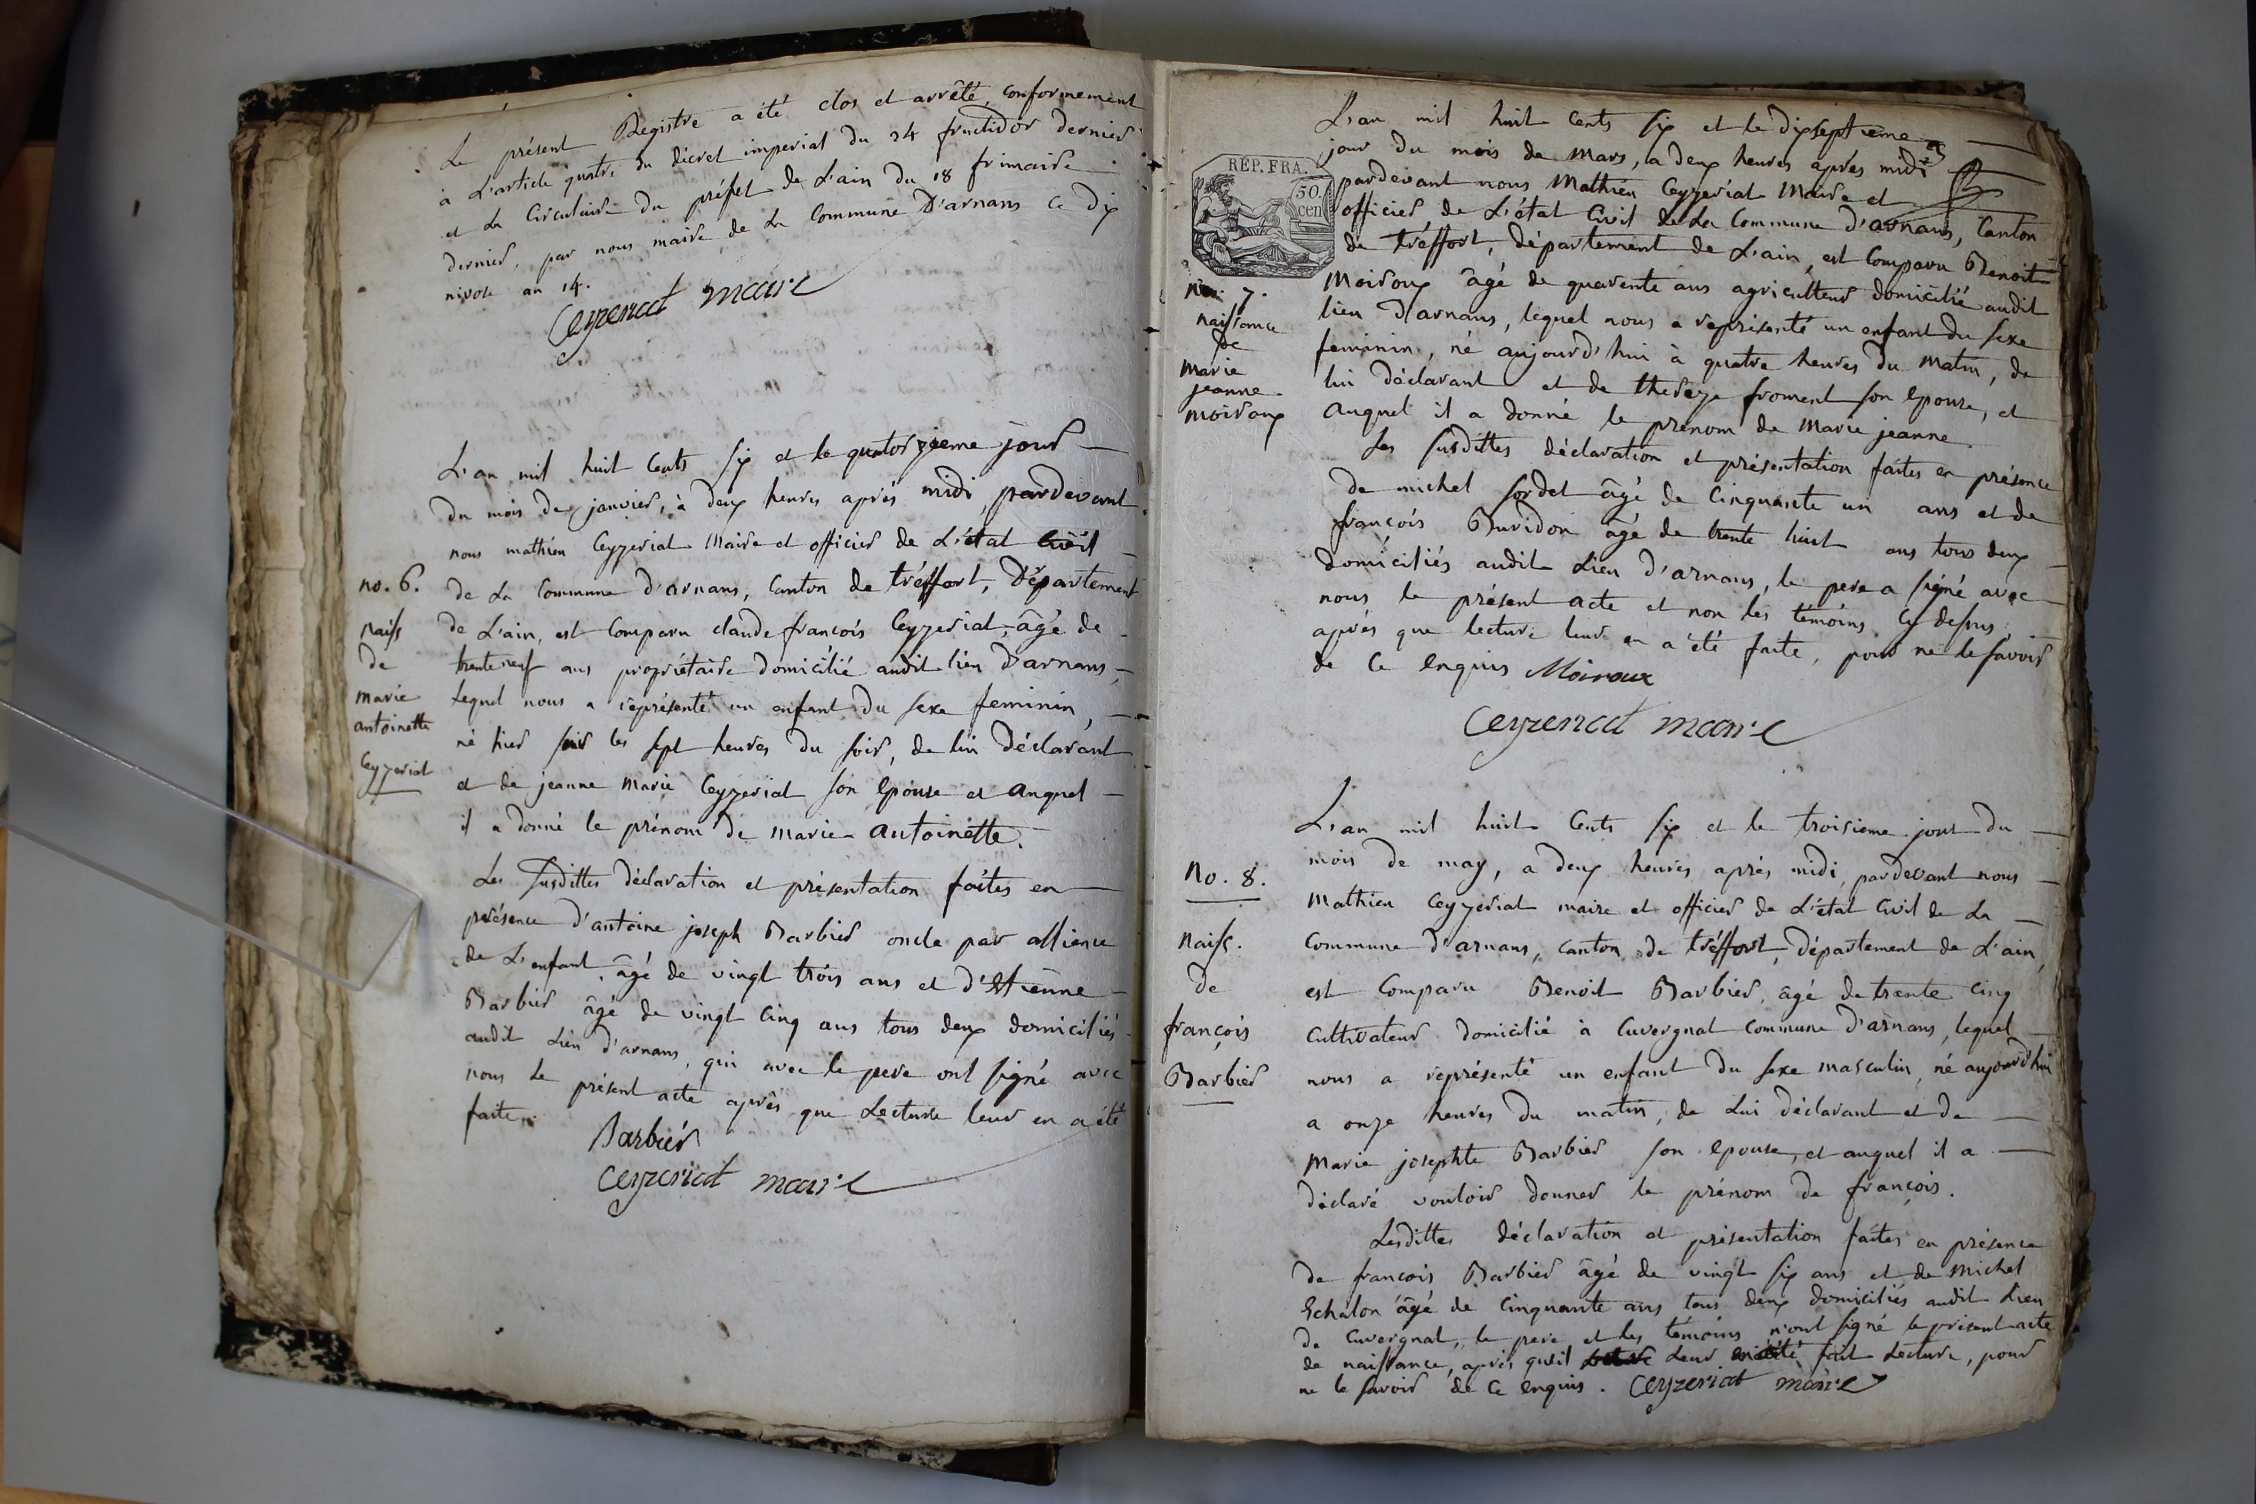 Le présent Registre a été clos et arrêté, conformement
à L'article quatre du décret imperial du 24 fructidor dernier
et La Circulaire du préfet de L'ain du 18 frimaire
dernier, par nous maire de La Commune D'arnans Ce dix
nivose an 14.
Ceyzeriat maire
L'an mil huit Cents Six et le quatorzieme jour
du mois de janvier, à deux heures après midi, pardevant
nous mathieu Ceyzeriat Maire et officier de L'état Civil
no. 6. de La Commune d'arnans, Canton de tréffort, Département
naiss de L'ain, est Comparu claude françois Ceyzeriat, âgé de
de trente neuf ans propriétaire domicilié audit lieu D'arnans,
marie Lequel nous a représenté un enfant du Sexe feminin,
antoinette né hier soir les Sept heures du Soir, de lui Déclarant
Ceyzeriat et de jeanne Marie Ceyzeriat Son Epouse et auquel
il a donné le prénom de marie Antoinette.
Les Susdittes déclaration et présentation faites en
présence d'antoine joseph Barbier oncle par allience
de L'enfant, âgé de vingt trois ans et d'Etienne
Barbier âgé de vingt Cinq ans tous deux domiciliés
audit Lieu d'arnans, qui avec le pere ont signé avec
nous Le présent acte après que Lecture leur en a été
faite.
Barbier
Ceyzeriat maire
L'an mil huit Cents Six et le dixseptieme
jour du mois de Mars, a deux heures après midi
REP. FRA.
50. cen
pardevant nous Mathieu Ceyzeriat Maire et
officier de L'état Civil de La Commune d'arnans, Canton
de tréffort, Département de L'ain, est Comparu Benoit
no. 7. Moiroux âgé de quarente ans agriculteur domicilié audit
naissance lieu D'arnans, lequel nous a représenté un enfant du Sexe
de feminin, né aujourd'hui à quatre heures du Matin, de
Marie lui déclarant et de thereze froment Son Epouse, et
jeanne auquel il a donné le prénom de Marie jeanne.
moiroux
Les Susdittes déclaration et présentation faites en présence
de michel Sordet âgé de Cinquante un ans et de
françois Buridon âgé de trente huit ans tous deux
domiciliés audit Lieu d'arnans, le pere a signé avec
nous le présent acte et non les témoins Cy dessus
après que lecture leur en a été faite, pour ne le Savoir
de Ce Enquis Moiroux
Ceyzeriat maire
L'an mil huit Cents Six et le troisieme jour du
mois de may, a deux heures après midi, pardevant nous
no. 8. Mathieu Ceyzeriat maire et officier de L'état Civil de La
naiss. Commune d'arnans, canton de tréffort, département de L'ain,
de est Comparu Benoit Barbier, âgé de trente Cinq
françois Cultivateur domicilié à Cuvergnat Commune d'arnans, lequel
Barbier nous a représenté un enfant du Sexe masculin, né aujourd'hui
a onze heures du matin, de Lui déclarant et de
Marie josephte Barbier Son Epouse, et auquel il a
déclaré vouloir donner le prénom de françois.
Lesdittes déclaration et présentation faites en présence
de françois Barbier âgé de vingt Six ans et de Michel
Echalon âgé de Cinquante ans tous deux domiciliés audit Lieu
de Cuvergnat, le pere et les témoins n'ont signé le présent acte
de naissance, après qu'il Leur fait Lecture, pour
ne le Savoir de Ce enquis. Ceyzeriat maire